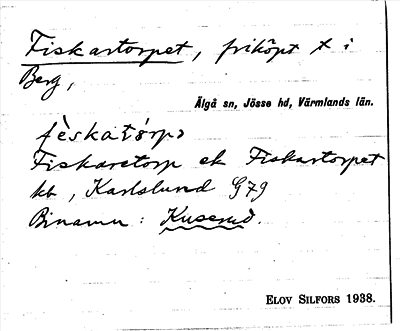 Fiskartorpet, friköpt t i
Berg,
Älgå sn, Jösse hd, Värmlands län.
fèskatórp
Fiskaretorp ek Fiskartorpet
kb, Karlslund G79
Binamn: Kuserud.
ELOV SILFORS 1938.